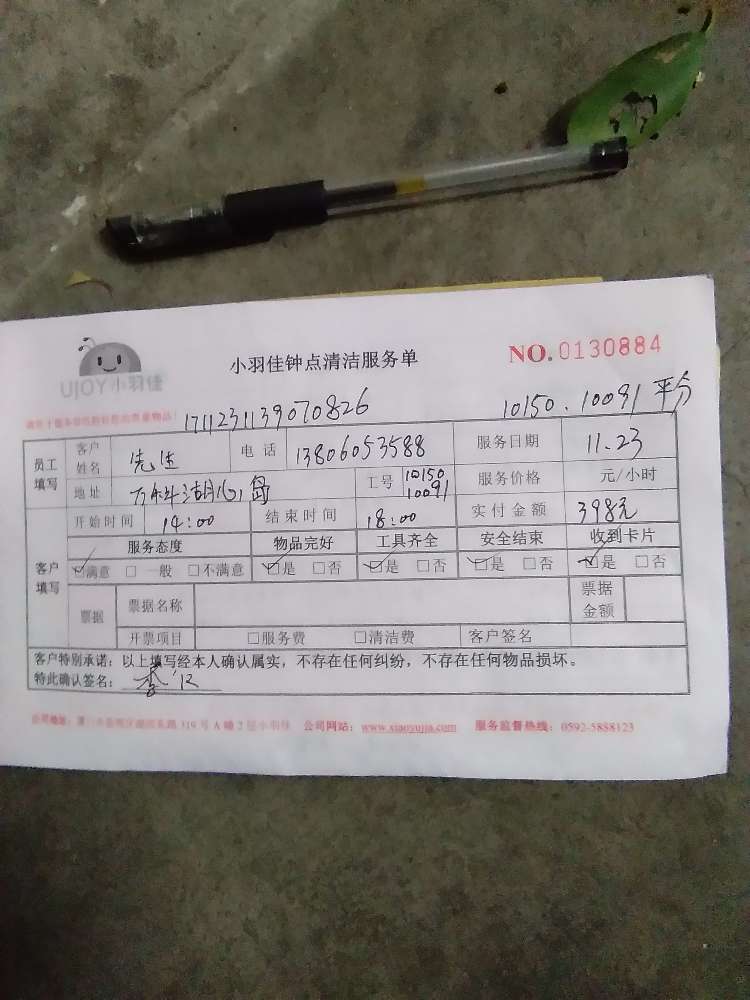 UJOY小羽佳
小羽佳钟点清洁服务单
NO.0130884
1711231139070826
10150.10091 平分
员工填写 客户姓名 先生 电话 13806053588 服务日期 11.23
地址 万科湖心岛 工号 10150 10091 服务价格 元/小时
开始时间 14:00 结束时间 18:00 实付金额 398元
客户填写 服务态度 物品完好 工具齐全 安全结束 收到卡片
☑满意 □一般 □不满意 ☑是 □否 ☑是 □否 ☑是 □否 ☑是 □否
票据 票据名称 票据金额
开票项目 □服务费 □清洁费 客户签名
客户特别承诺：以上填写经本人确认属实，不存在任何纠纷，不存在任何物品损坏。
特此确认签名：
公司地址： 319号A幢2层小羽佳 公司网站：www.xiaoyujia.com 服务监督热线：0592-5888123